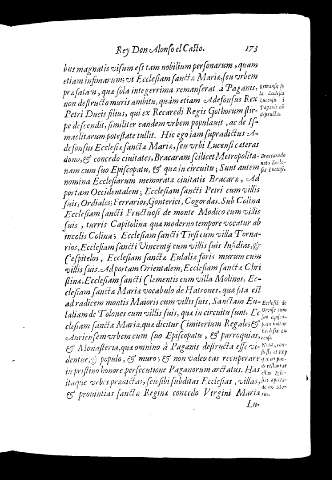 Rey Don Alonso el Casto. 173
bus magnatis visum est tam nobilium personarum, quam
etiam infimarum, vt Ecclesiam sanctæ Mariæ, seu vrbem
præfatam, quæ sola integerrima remanserat à Paganis,
non destructo muris ambitu, quàm etiam Adefonsus Rex
Petri Ducis filius, qui ex Recaredi Regis Gothorum stir
pe descendit, similiter eandem vrbem populauit, ac de Is-
maelitarum potestate tulit. His ego iam supradictus A-
defonsus Ecclesiæ sanctæ Mariæ, seu vrbi Lucensi cateras
dono, & concedo ciuitates, Bracaram scilicet Metropolita-
nam cum suo Episcopatu, & quæ in circuitu; Sunt autem
nomina Ecclesiarum memoratæ ciuitatis Bracaræ, Ad
portam Occidentalem; Ecclesiam sancti Petri cum villis
suis, Ordiales; Ferrarios, Gonterici, Cogordas. Sub Colina
Ecclesiam sancti Fructuosi de monte Modico cum villis
suis, turris Capitolina quæ moderno tempore vocatur ab
incolis Colina; Ecclesiam sancti Tirsi cum villa Torna-
rios, Ecclesiam sancti Vincentij cum villis suis Insidias, &
Cespitelos, Ecclesiam sanctæ Eulaliæ foris murum cum
villis suis. Ad portam Orientalem, Ecclesiam sanctæ Chri
stinæ, Ecclesiam sancti Clementis cum villa Molinos, Ec-
clesiam sanctæ Mariæ vocabulo de Hatrones, quæ sita est
ad radicem montis Maiori cum villis suis, Sanctam Eu-
laliam de Tolones cum villis suis, quæ in circuitu sunt. Ec
clesiam sanctæ Mariæ, quæ dicitur Cimitorium Regale, &
Auriensem vrbem cum suo Episcopatu, & parroquijs,
& Monasteria, quæ omnino à Paganis destructa esse vi-
dentur, & populo, & muro, & non valeo eas recuperare
in pristino honore persecutione Paganorum arctatus. Has
itaque vrbes prædictas, seu sibi subditas Ecclesias, villas,
& prouintias sanctæ Reginæ concedo Virgini Mariæ
Lu-